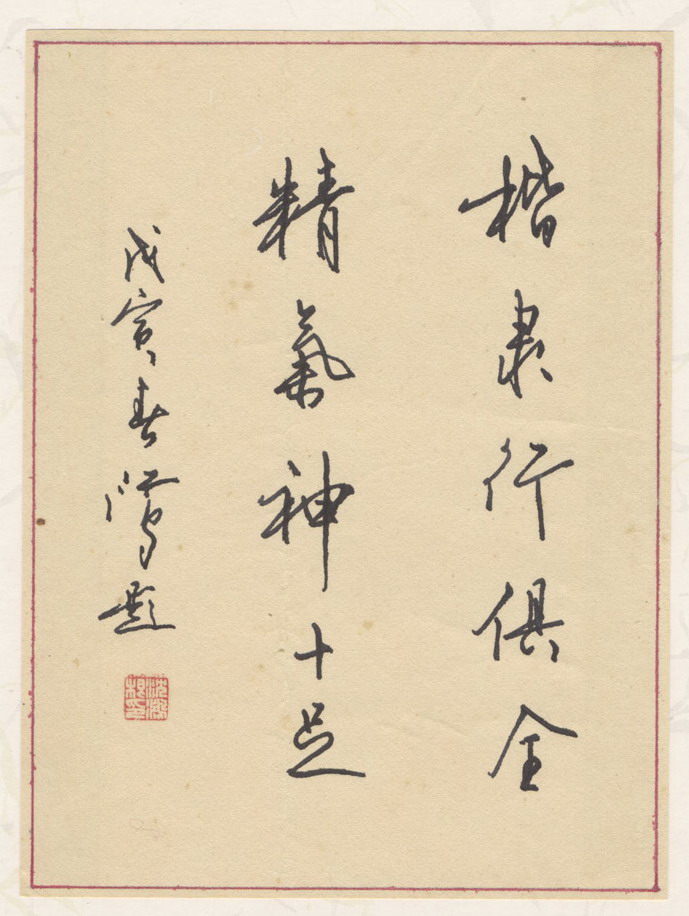 楷隶行俱全
精氣神十足
戊寅春鴻题